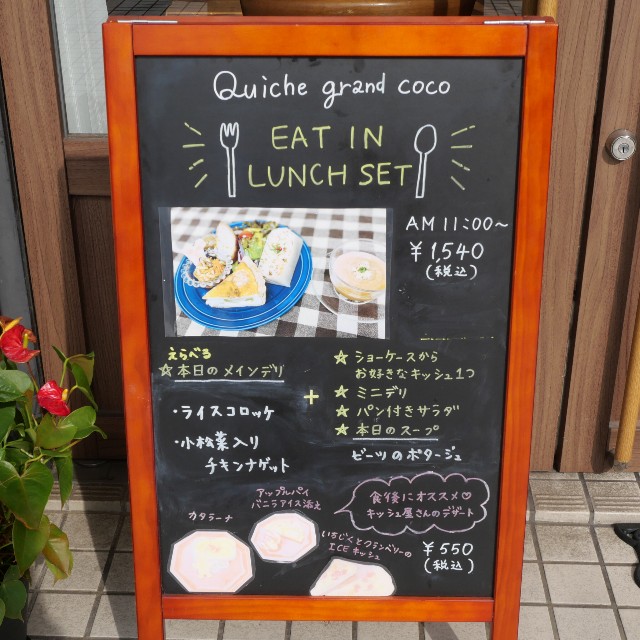 Quiche grand coco
EAT IN
LUNCH SET
AM 11:00~
¥1,540
(税込)
えらべる
☆本日のメインデリ
・ライスコロッケ
・小松菜入り
チキンナゲット
+
☆ショーケースから
お好きなキッシュ1つ
☆ミニデリ
☆パン付きサラダ
☆本日のスープ
ビーツのポタージュ
食後にオススメ♡
キッシュ屋さんのデザート
カタラーナ
アップルパイ
バニラアイス添え
いちじくとクランベリーの
ICEキッシュ
¥550
(税込)